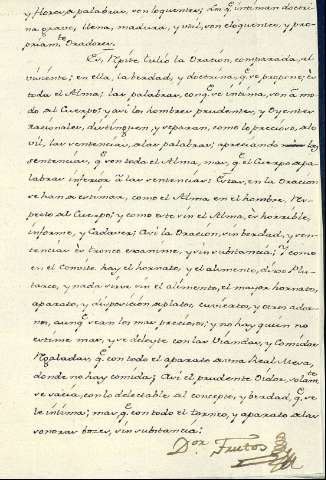 y Horosas palabras, son loquentes; àun q.e intiman doctri
na grave, llena, madura, y util, son eloquentes, y pro
priam.te Oradores.
Es, Nize Tulio la Oración, comparada, al
viviente; en ella, la verdad, y doctrina, q.e propone; es
toda el Alma; las palabras, con q.e se intima, son à mo
do al Cuerpo; y asi los hombres prudentes, y Oyentes
racionales, distinguen, y separan, como lo precioso, a lo
vil, las sentencias, a las palabras; apreciando las
sentencias, q.e son todo el Alma, mas q.e el Cuerpo a pa
labras inferior à las sentencias: Estas, en la Oracion
se han a estimar, como el Alma en el hombre, Res
pecto al Cuerpo; y como este sin el Alma, es horrible,
informe, y Cadaver; Asi la Oración, sin verdad, y sen
tencias es tronco exanime, y sin substancia; Y como
en el Convite, hay el hornato, y el alimento, dixo Plu
tarco, y nada sirve sin el alimento, el mayor hornato,
aparato, y disposición a platos, cuviertos, y otros ador
nos, aunq.e sean los mas preciosos; y no hay quien no
estime mas, y se deleyte con las Viandas, y Comidas
Regaladas, q.e con todo el aparato a una Real Mesa,
donde no hay comida; Asi el prudente Oidor, solam.te
se sacia, con lo delectable al concepto, y verdad, q.e se
le intima; mas q.e con todo el torneo, y aparato a las
sonoras vozes, sin substancia:
D.or Fructos